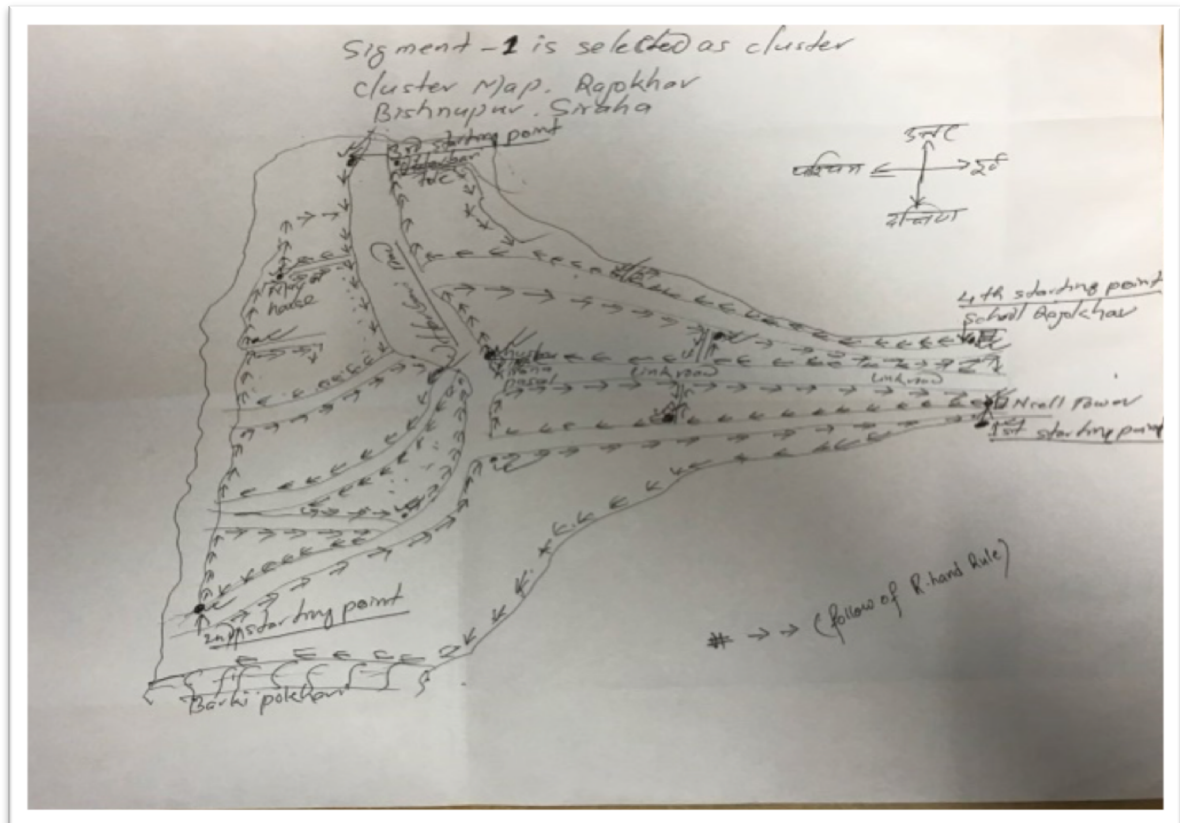 Sigment -1 is selected as cluster
cluster Map. Rajokhar
Bishnupur. Siraha
3rd starting point
उत्तर
पश्चिम
पूर्व
दक्षिण
Mayor
house
4th starting point
School Rajokhar
Link road
Link road
Ncell Power
1st starting point
2nd starting point
Barki pokhari
# → → (follow of R-hand Rule)